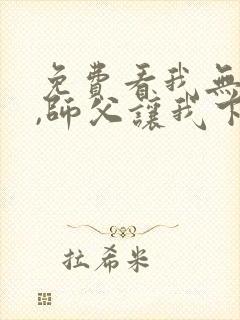 免費看我無
,師父讓我下
拉希米